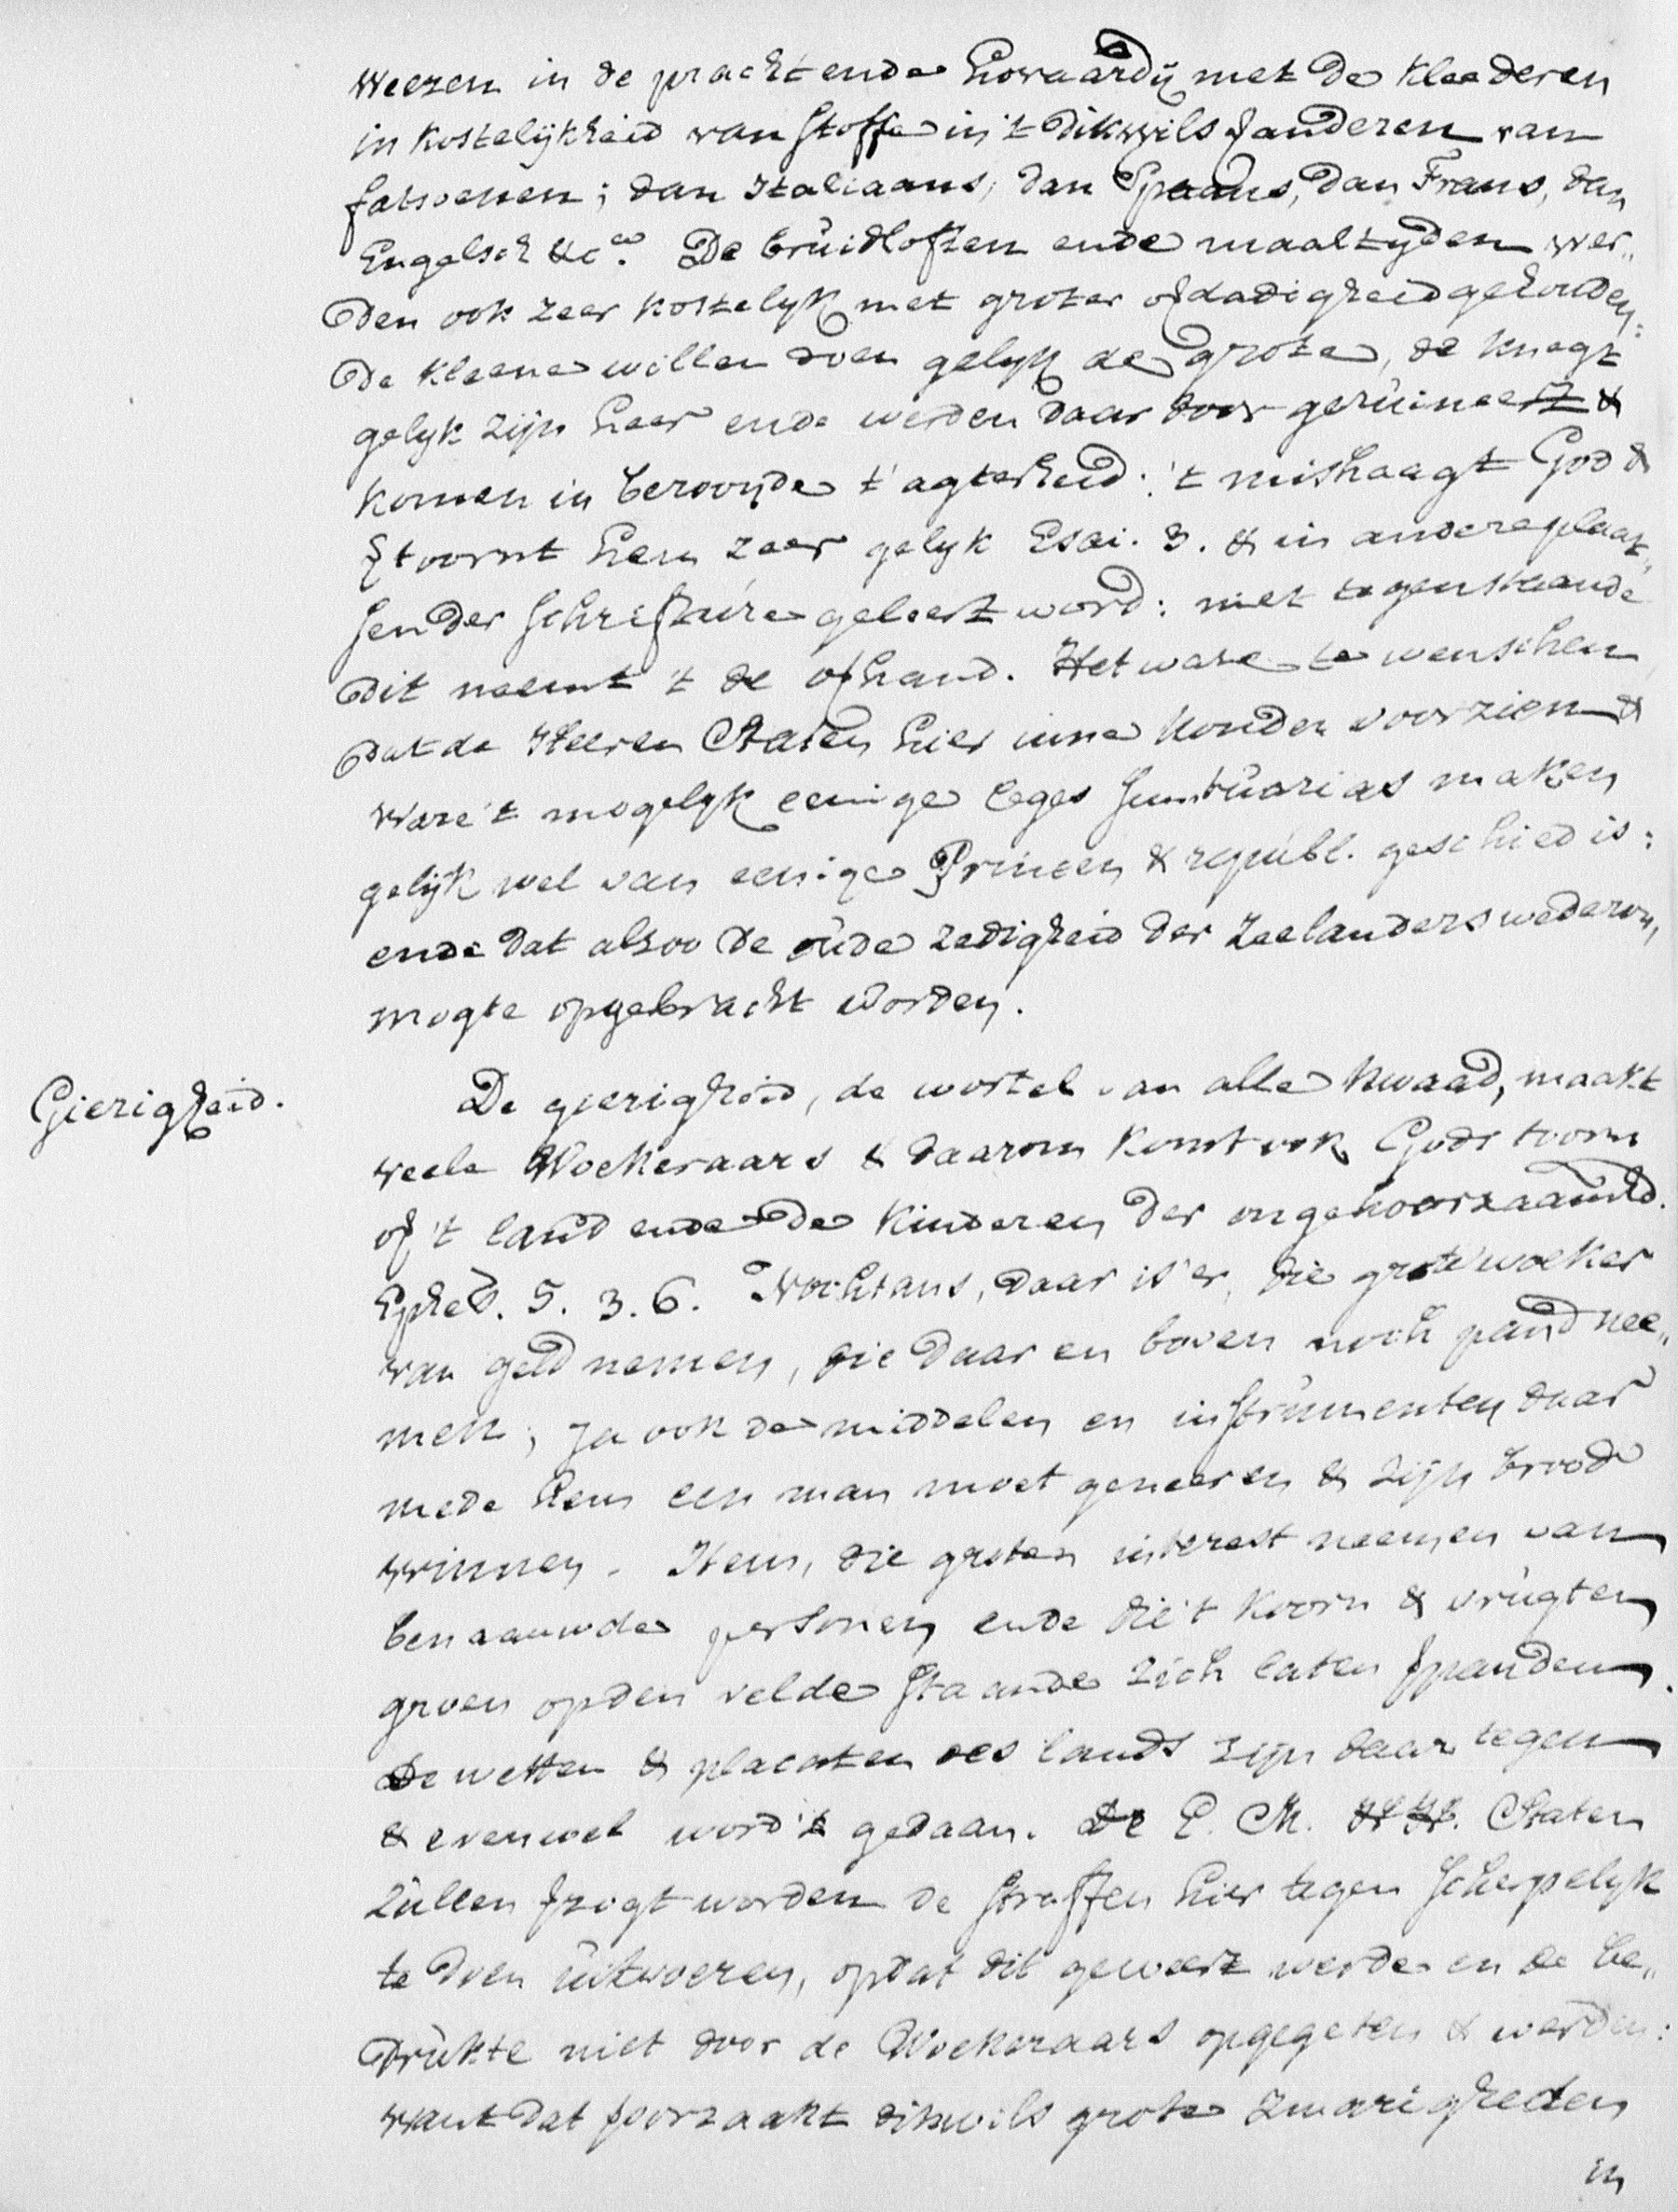 weezen in de pracht ende hovaardij met de kleederen
in kostelijkheid van stoffe in 't dikwils veranderen van
fatsoenen; dan Italiaans, dan Spaans, dan Frans, dan
Engelsch &c.ª De bruidloften ende maaltyden wer„
den ook zeer kostelyk met groter overdadigheid gehouden:
De kleene willen doen gelyk de grote, de knegt
gelyk zijn heer ende werden daar door geruineert &
komen in beroovde t'agterheid: 't mishaagt God &
vertoornt hem zeer gelyk Esai. 3. & in andere plaat„
sen der schrifture geleert word: niet tegenstaande
dit neemt 't de overhand. Het ware te wenschen
dat de Heeren Staten hier inne konden voorzien &
ware 't mogelyk eenige leges sumtuarias maken
gelijk wel van eenige Princen & republ. geschied is:
ende dat alsoo de oude zedigheid der Zeelanders wederom,
mogte opgebracht worden.
Gierigheid.
De gierigheid, de wortel van alle kwaad, maakt
veele Woekeraars & daarom komt ook Gods toorn
over 't land ende de kinderen der ongehoorzaamhd.
Ephes. 5. 3. 6. Nochtans, daar is 'er, die grote woeker
van geld nemen, die daar en boven noch pand nee„
men; ja ook de middelen en instrumenten daar
mede hem een man moet geneeren & zijn brood
winnen. Item, die groten interest neemen van
benaauwde personen ende die 't koorn & vrugten
groen op den velde staande zich laten verpanden.
De wetten & placaten des lands zijn daar tegen
& evenwel word 't gedaan. De E. M. HH. Staten
zullen verzogt worden de straffen hier tegen scherpelyk
te doen uitvoeren, opdat dit geweert werde en de be„
drukte niet door de Woekeraars opgegeten & werden:
want dat veroorzaakt dikwils grote zwarigheden
in